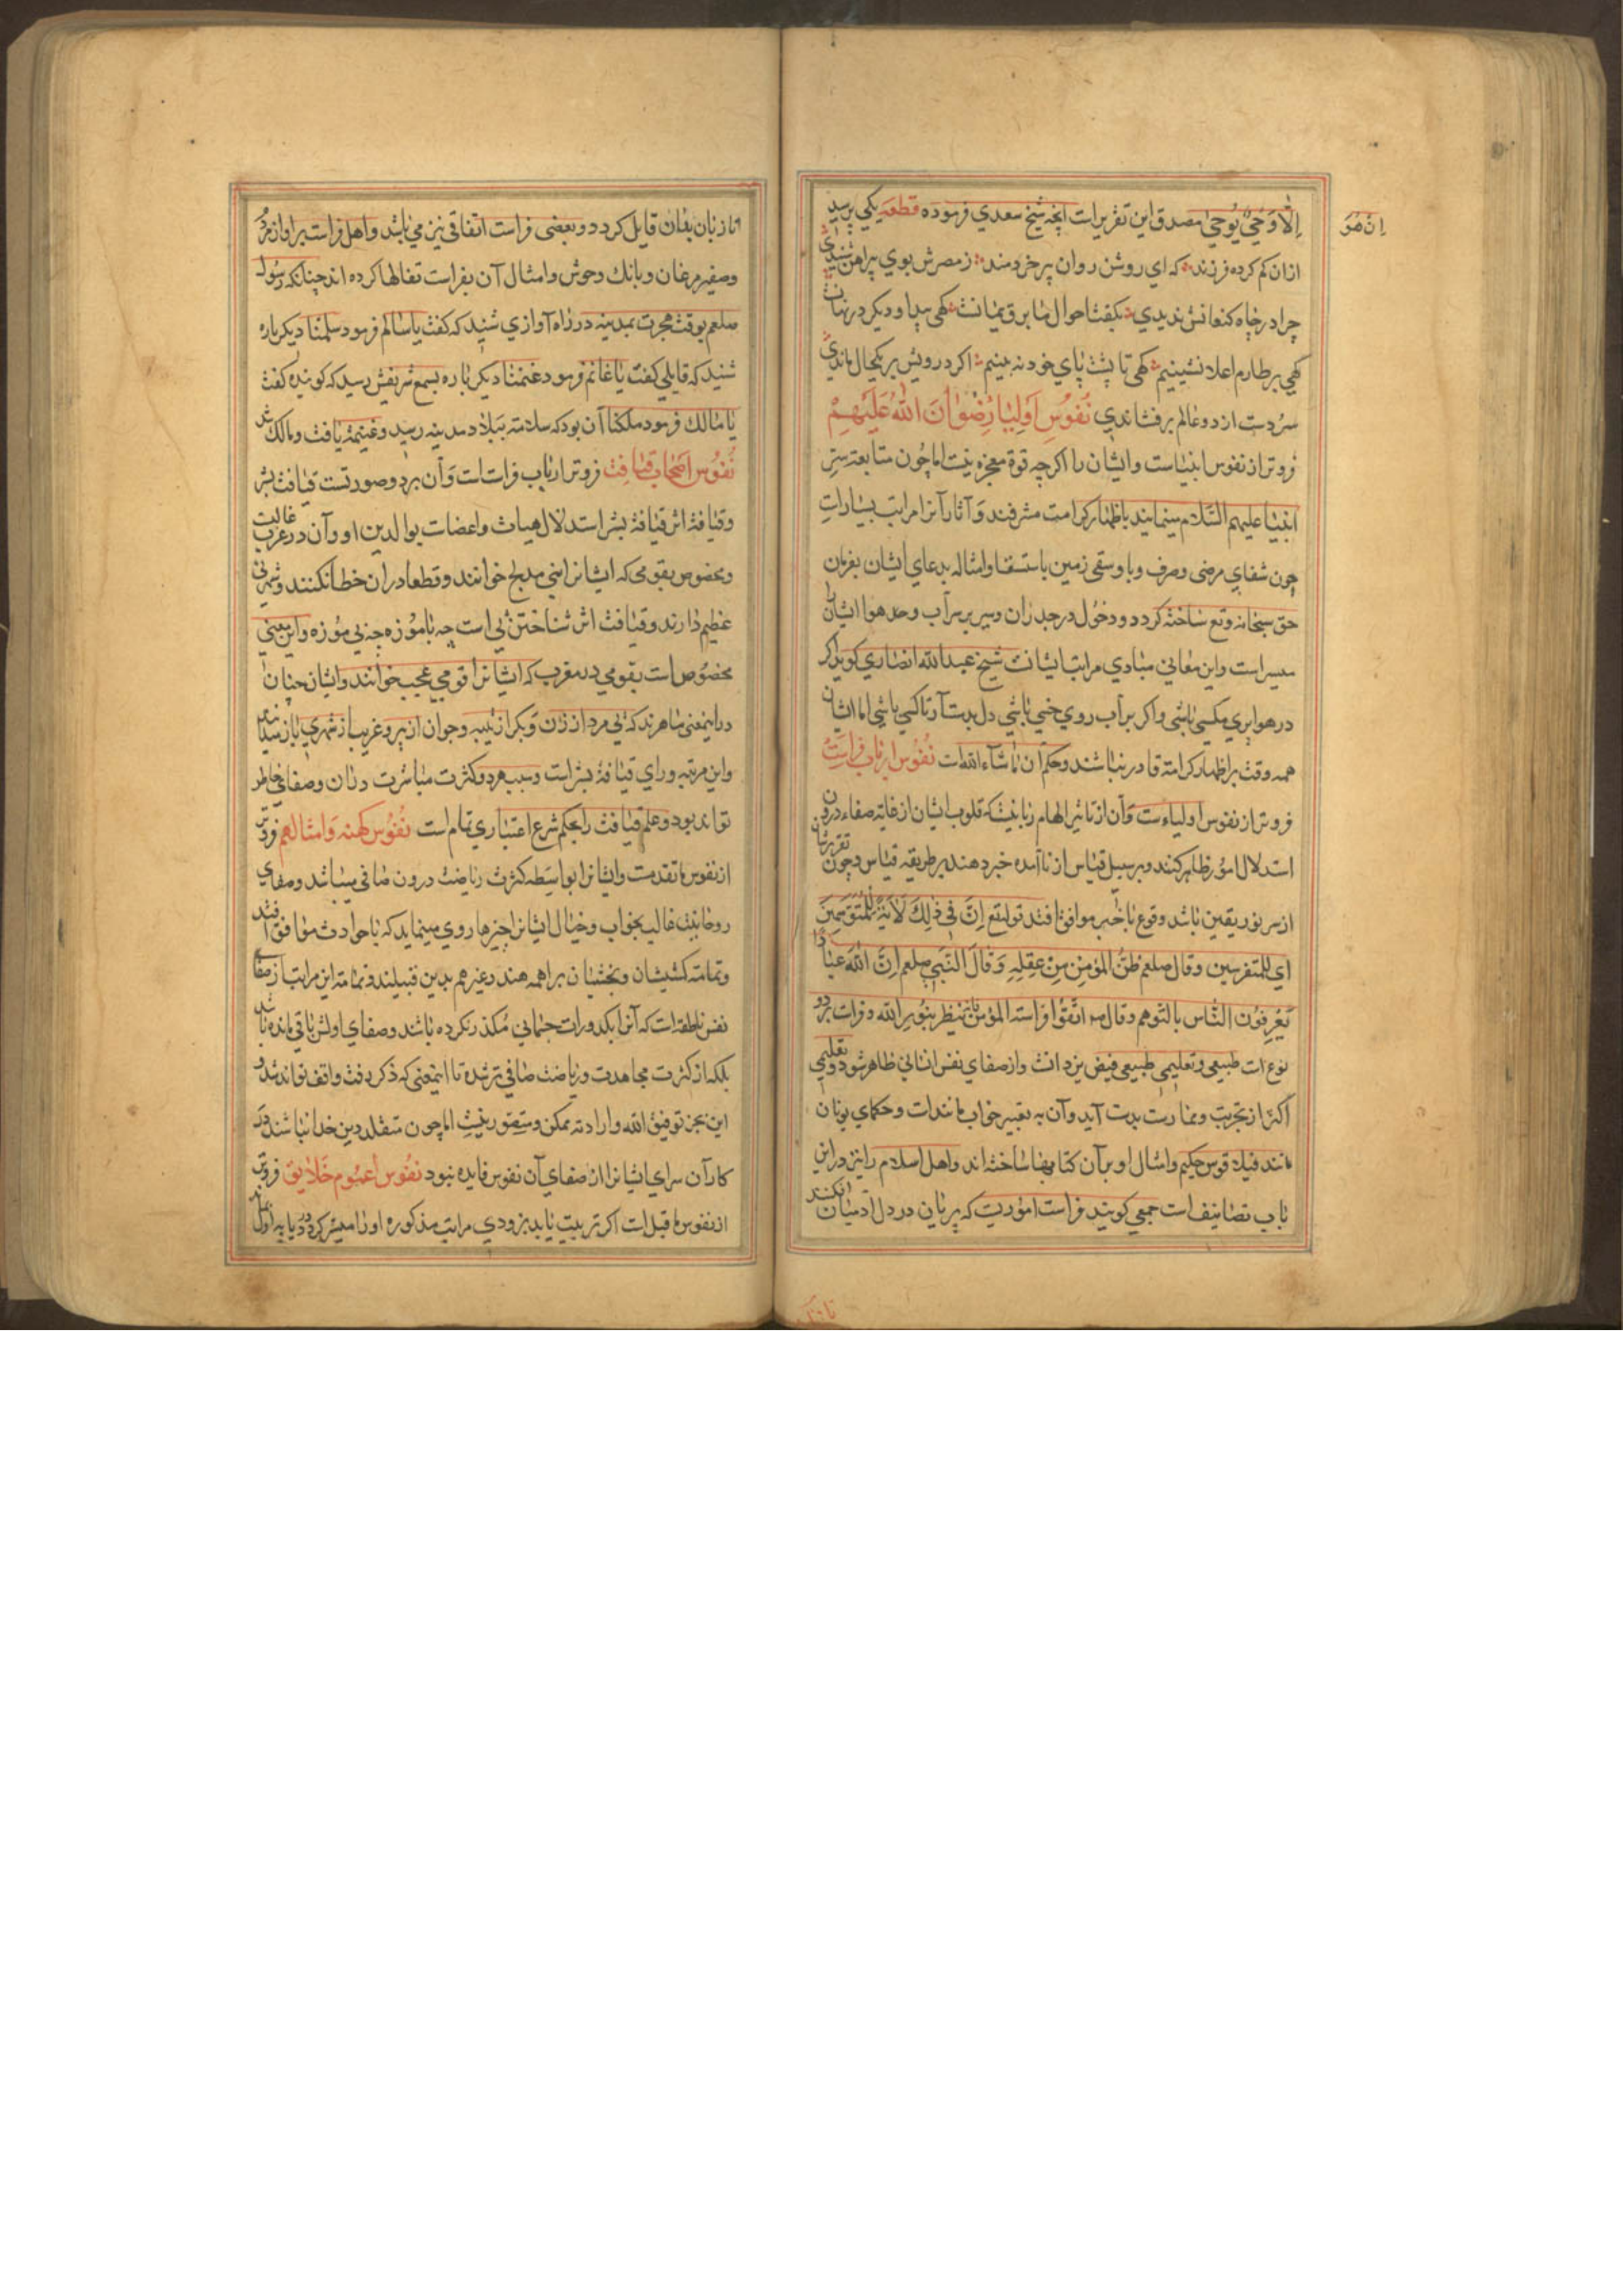 ان هو
اِلّا وَحيٌ يُوحي مصدق اين تقريرات انچه شيخ سعدي فرموده قطعه يكي پرسيد
ازان كم كرده فرزند كه اي روشن روان پير خردمند ز مصرش بوي پيراهن شنيدي
چرا در چاه كنعانش نديدي بكفت احوال ما برق يمانست كهي پيدا و ديكر در نهانست
كهي بر طارم اعلا نشينيم كهي تا پشت پاي خود نه بينيم اكر درويش بر يكحال ماندي
سر دست از دو عالم برفشاندي نُفوُسِ اَوليٰا رِضوٰانَ اللّهُ عَلَيْهِمْ
فروتر از نفوس انبياست وايشان را اكرچه قوة معجزه نيست اما چون متابعت سير
انبيا عليهم السّلام مينمايند باظهار كرامت مشرفند وَ آثار آنرا مراتب بسيارات
چون شفاي مرضي وصرف وبا وسقي زمين باستسقا وامثاله بدعاي ايشان بفرمان
حق سبحانه وقع ساخته كردد ودخول در جدران وسير بر سر آب وحد هوا ايشانرا
ميسر است واين معاني مبادي مراتب ايشانست شيخ عبدالله انصاري كويد اكر
در هوا پري مكسي باشي واكر بر آب روي خسي باشي دل بدست آر تا كسي باشي اما ايشان
همه وقت بر اظهار كرامة قادر نباشند وحكم آن ماشاء الله است نُفُوس ارباب فراسَتْ
فروتر از نفوس اولياءست وَآن از تاثير الهام ربانيست كه قلوب ايشان از غاية صفاء درون
استدلال امور ظاهر كنند وبر سبيل قياس از ناآمده خبر دهند بر طريقه قياس وچون تقرير شان
از سر نور يقين باشد وقوع با خبر موافق افتد قوله تع اِنَّ في ذٰلِكَ لَآيَةً لِلْمُتَوَسِّمينَ
اي للمتفرسين وقال صلعم ظنُّ المؤمنِ مِنْ عقلِهِ وَقالَ النَّبي صلعم اِنَّ اللّهَ عِبٰادًا
يَعْرِفُون النّاس بالتّوهم وقال اتقُوا فراسته المؤمن ينظر بِنُورِ الله وفراست بر دو
نوع است طبيعي وتعليمي طبيعي فيض يزدانست واز صفاي نفس انساني ظاهر شود وتعليمي
اكثر از تجربت وممارست بدست آيد وآن به تعبير خواب مانندات وحكماي يونان
مانند فيلاقوس حكيم وامثال او بر آن كتابها ساخته اند واهل اسلام را نيز در اين
باب تصانيف است جمعي كويند فراست اموريست كه پريان در دل آدميان افكنند
تا از زبان يشان قايل كردد وبعضي فراست اتفاقي نيز مي باشد واهل فراست بر آواز مردم
وصفير مرغان وبانك وحوش وامثال آن بفراست تفالها كرده اند چنانكه رَسُول
صلعم بوقت هجرت بمدينه در راه آوازي شنيد كه كفت يا سالم فرمود سلمنا ديكر باره
شنيد كه قايلي كفت يا غانم فرمود غنمنا ديكر باره بسمع شريفش رسيد كه كوينده كفت
يا مٰالك فرمود ملكنا آن بود كه سلامته ببلاد مدينه رسيد وغنيمة يافت ومالك شد
نُفوُس اصحٰاب قيٰافت فروتر ارباب فراست است وَآن بر دو صورتست قيافت بشر
وقيافة اثر قيافة بشر استدلال هيات واعضات بوالدين او وآن در غالب عرب
ومخصوص بقومي كه ايشانرا بني مدلج خوانند وقطعا در ان خطا نكنند وشهرتي
عظيم دارند وقيافت اثر شناختن پي است چه با موزه چه بي موزه واين معني
مخصُوص است بقومي در مغرب كه ايشانرا قومي عجيب خوانند وايشان چنان
در اينمعني ماهرند كه پي مرد از زن وَ بكر از ثيبه وجوان از پير وغريب از شهري باز شناسد
واين مرتبه وراي قيافة بشر است وسبب هر دو كثرت مباشرت در آن وصفاي خاطر
تواند بود وعلم قيافت را بحكم شرع اعتباري تمام است نُفُوس كهنه وَامثالهم فروتر
از نفوس ما تقدمست وايشانرا بواسَطه كثرت رياضت درون صافي ميباشد وصفاي
روحانيت غالب بخواب وخيال ايشانرا چيزها روي مينمايد كه با حوادث موافق افتد
وتمامت كشيشان وبخشيان براهمه هند وغيرهم بدين قبيلند وتمامة اين مراتب از صفاء
نفس ناطقه است كه آنرا بكدورات جسماني مكدر نكرده باشد وصفاي اولش باقي مانده باشد
بلكه از كثرت مجاهدت ورياضت صافي تر شده تا اينمعني كه ذكر رفت واقف تواند شد و
اين بجز توفيق الله وارادته ممكن ومتصور نيست اما چون متقلد دين خدا نباشند در
كار آن سراي ايشانرا از صفاي آن نفوس فايده نبود نفُوس اعمُوم خَلايق فروتر
از نفوس ما قبل است اكر تربيت يابد بزودي مراتب مذكوره او را ميسر كردد يا به اول